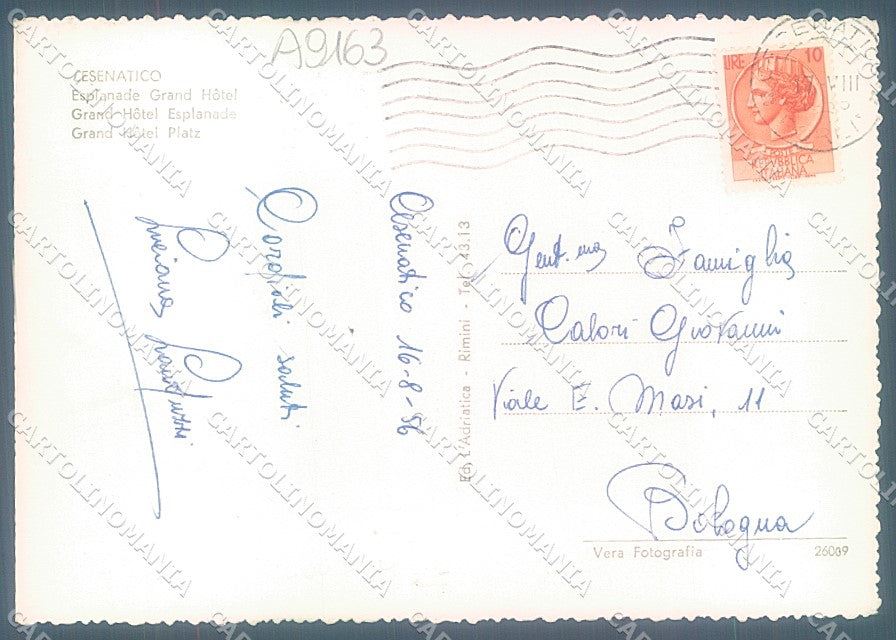 A9163
CESENATICO
Esplanade Grand Hôtel
Grand Hôtel Esplanade
Grand Hôtel Platz
LIRE 10
POSTE
REPVBBLICA
ITALIANA
VIII
Cesenatico 16-8-56
Cordiali saluti
Luciana
Ed. L'Adriatica - Rimini - Tel. 43.13
Gent.ma Famiglia
Calori Giovanni
Viale E. Masi, 11
Bologna
Vera Fotografia
26009
CARTOLINOMANIA